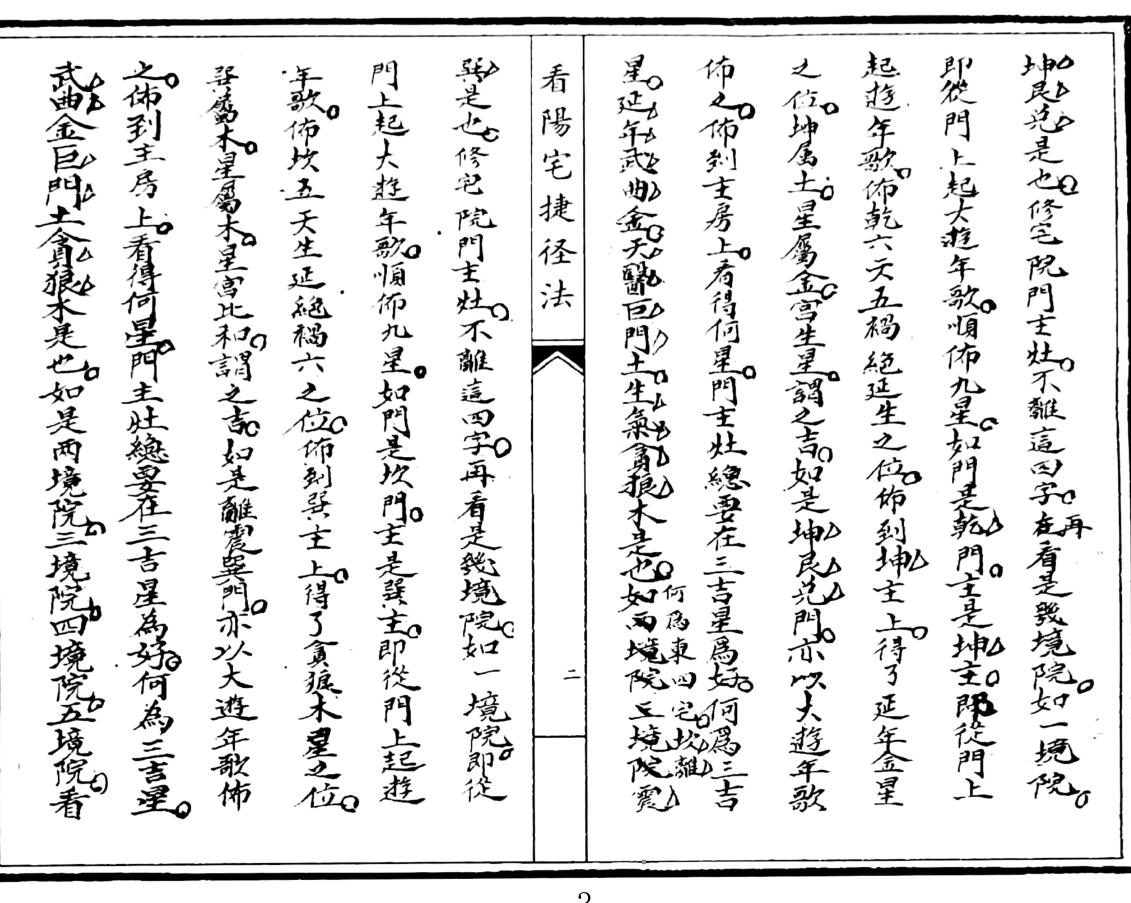 坤艮兑是也修宅院門主灶不離這四字在再看是幾境院如一境院
即從門上起大遊年歌順佈九星如門是乾門主是坤主即從門上
起遊年歌佈乾六天五禍絕延生之位佈到坤主上得了延年金星
之位坤属土星屬金宮生星謂之吉如是坤艮兑門亦以大遊年歌
佈之佈到主房上看得何星門主灶總要在三吉星爲好何爲三吉
星延年武曲金天醫巨門土生氣貪狼木是也如両境院三境院震
何爲東四宅坎離
看陽宅捷径法
二
巽是也修宅院門主灶不離這四字再看是幾境院如一境院即從
門上起大遊年歌順佈九星如門是坎門主是巽主即從門上起遊
年歌佈坎五天生延絕禍六之位佈到巽主上得了貪狼木星之位
巽屬木星屬木星宮比和謂之吉如是離震巽門亦以大遊年歌佈
之佈到主房上看得何星門主灶總要在三吉星為好何為三吉星
武曲金巨門土貪狼木是也如是両境院三境院四境院五境院看
2